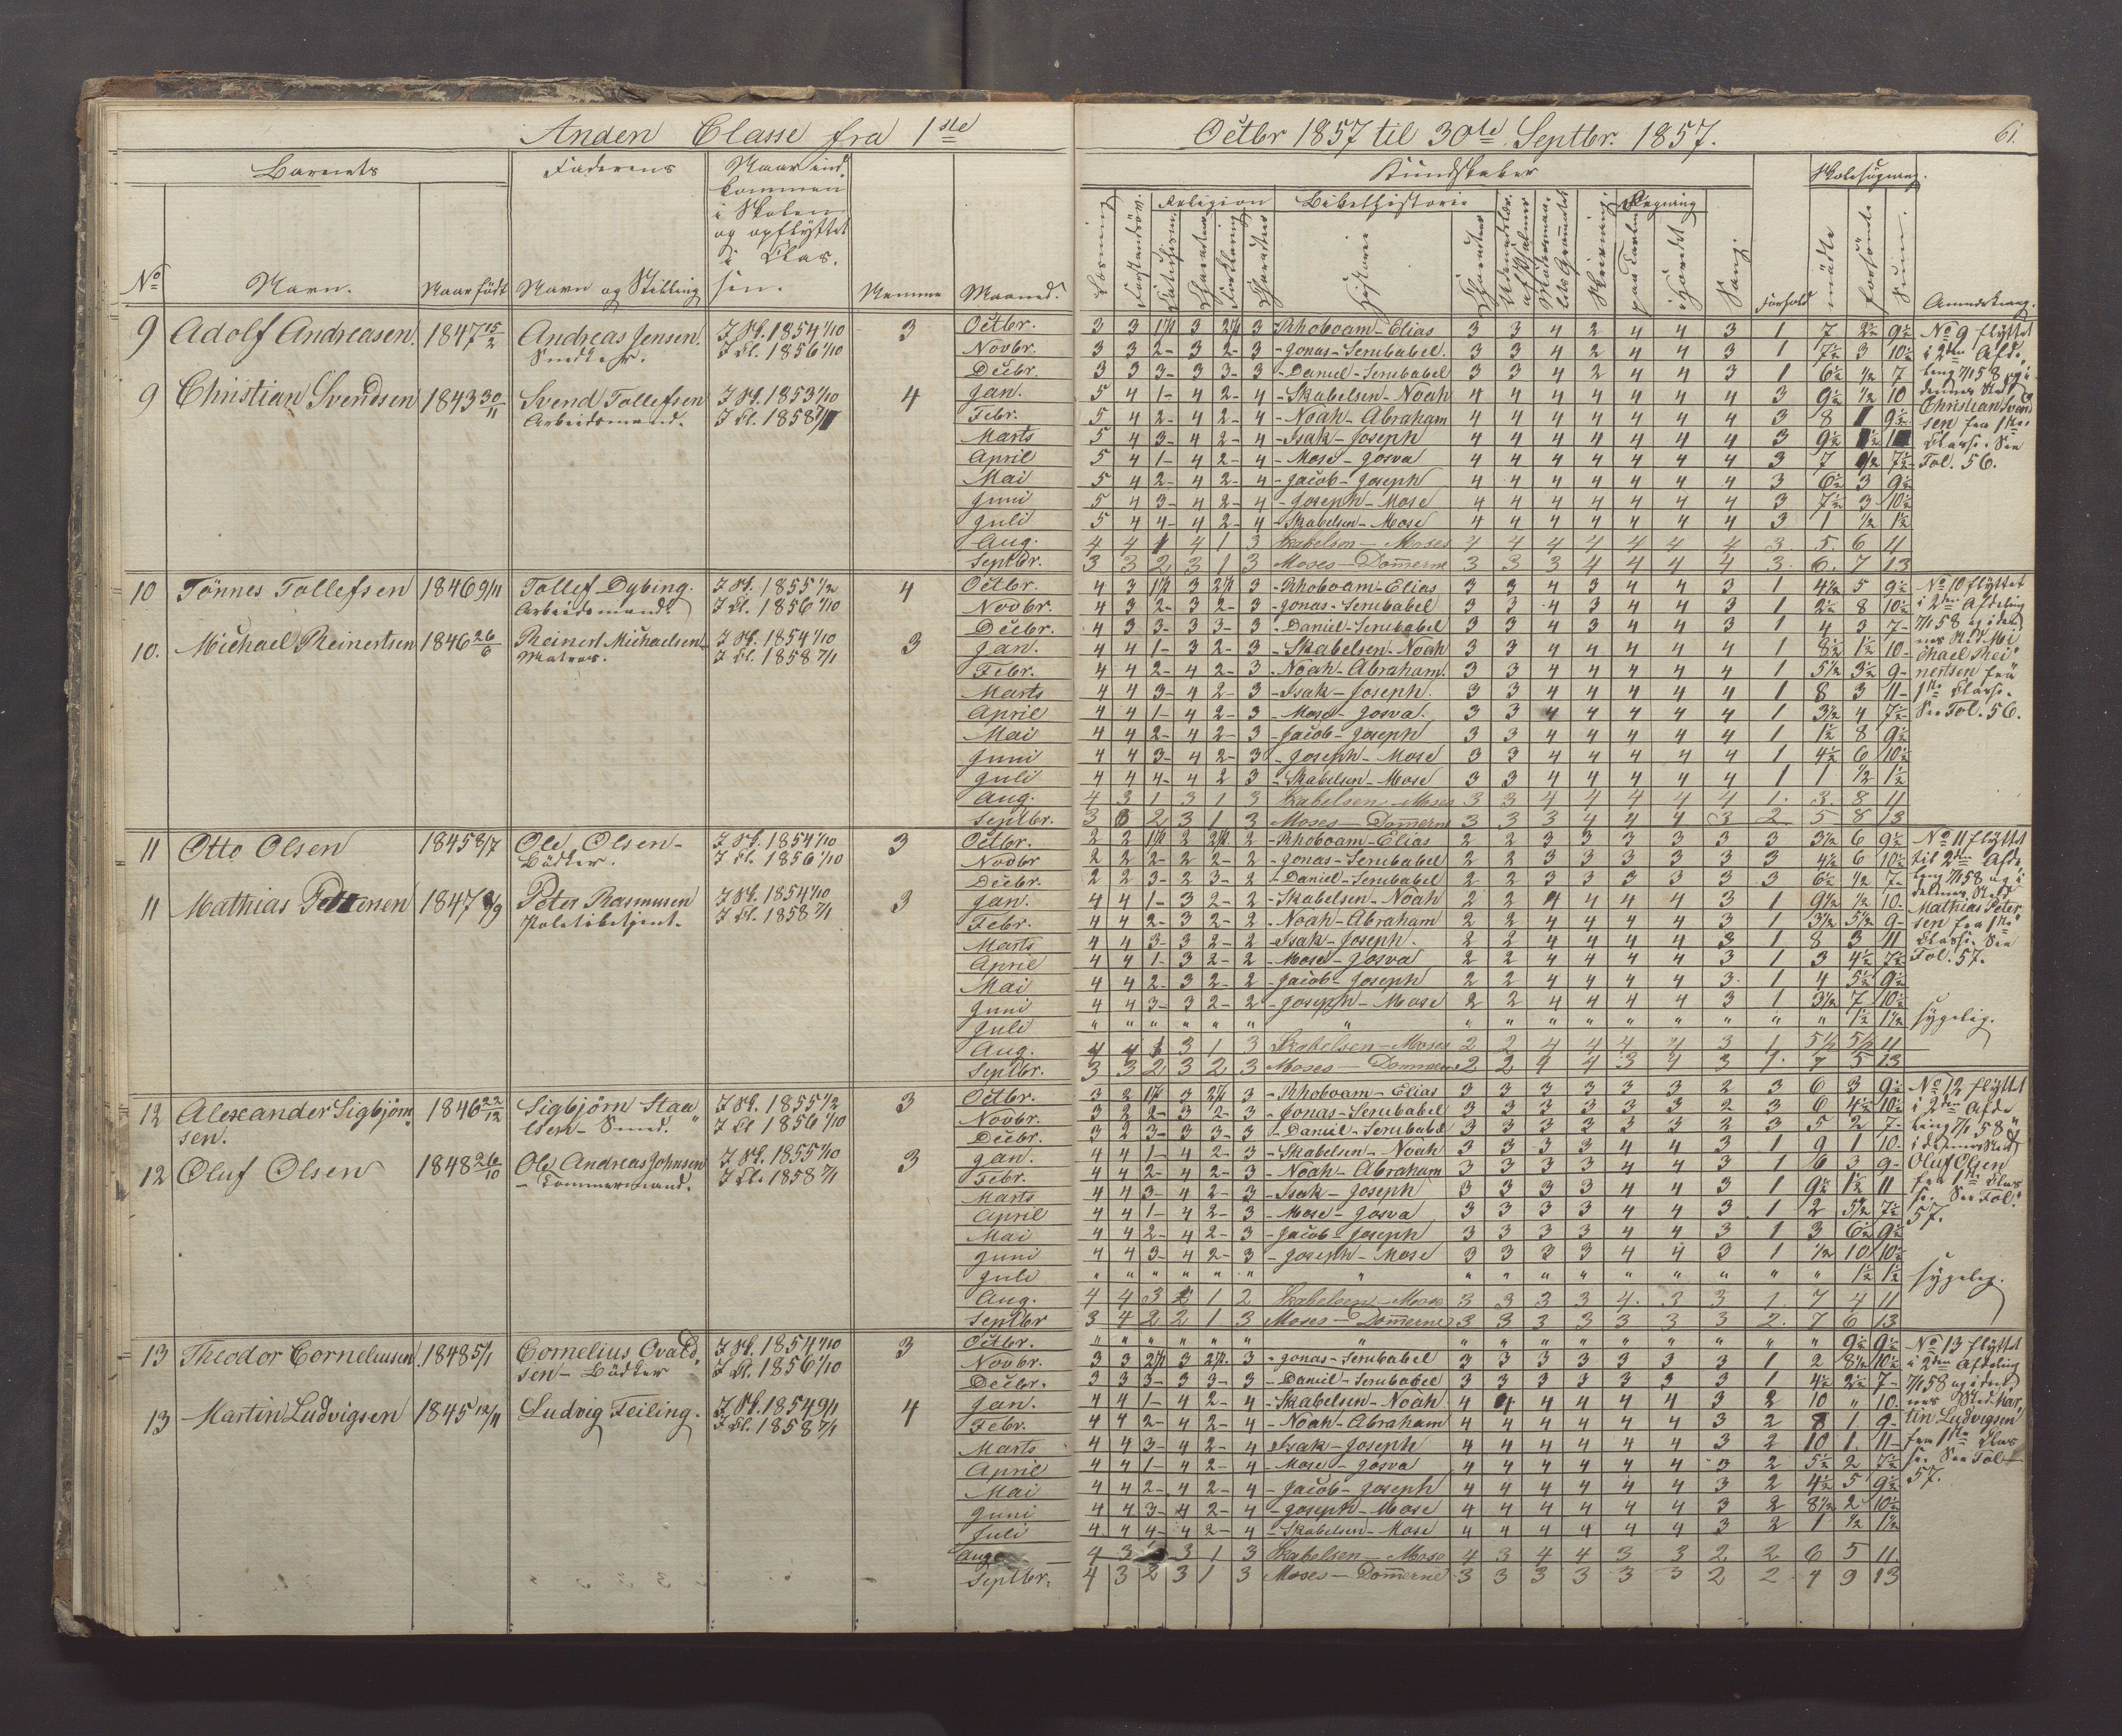 Anden Classe fra 1ste Octbr 1857 til 30te Septbr. 1857. 61.
Barnets Faderens Naar ind Kundskaber Skolesøgning.
kommen
i Skolen Religion Bibelhistorie Regning
og opflyttet
i Clas
No Navn. Naar født Navn og Stilling sen. Nemme Maaned. Læsning Historie Skrivning Sang. Forhold mødte forsømte Sum. Anmærkning.
9 Adolf Andreasen. 1847 15/2 Andreas Jensen. I Sk. 1854 1/10 3 Octbr. 3 3 1 1/2 3 2 1/2 3 Rhoboam-Elias 3 3 4 2 4 4 3 1 7 2 1/2 9 1/2 No 9 flyttet
Snedker. I Cl. 1856 1/10 Novbr. 3 3 2- 3 2- 3 -Jonas-Serubabel. 3 3 4 2 4 4 3 1 7 1/2 3 10 1/2 i 2den Afde
Decbr. 3 3 3- 3 3- 3 -Daniel-Serubabel 3 3 4 2 4 4 3 1 6 1/2 1/2 7 ling 7/1 58 og i
9 Christian Svendsen 1843 30/11 Svend Tollefsen I Sk. 1853 1/10 4 Jan. 5 4 1- 4 2- 4 -Skabelsen-Noah 4 4 4 4 4 4 4 3 9 1/2 1/2 10 dennes Sted
Arbeidsmand. I Cl. 1858 7/1 Febr. 5 4 2- 4 2- 4 -Noah-Abraham 4 4 4 4 4 4 4 3 8 1 9 1/2 Christian Svend
Marts 5 4 3- 4 2- 4 -Isak-Joseph 4 4 4 4 4 4 4 3 9 1/2 sen fra 1ste
April 5 4 1- 4 2- 4 -Mose-Josva 4 4 4 4 4 4 4 3 7 1/2 7 1/2 Classe. See
Mai 5 4 2- 4 2- 4 -Jacob-Joseph 4 4 4 4 4 4 4 3 6 1/2 3 9 1/2 Fol. 56.
Juni 5 4 3- 4 2- 4 -Joseph-Mose 4 4 4 4 4 4 4 3 7 1/2 3 10 1/2
Juli 5 4 4- 4 2- 4 -Skabelsen-Mose 4 4 4 4 4 4 4 3 1 1/2 1 1/2
Aug. 4 4 1 4 1 3 Skabelsen-Moses 4 4 4 4 4 4 4 3. 5. 6 11
Septbr. 3 3 2 3 1 3 Moses-Dommerne 3 3 3 4 4 4 4 3. 6. 7 13
10 Tönnes Tollefsen 1846 9/11 Tollef Dybing. I Sk. 1855 1/2 4 Octbr. 4 3 1 1/2 3 2 1/2 3 -Rhoboam-Elias 3 3 4 3 4 4 3 1 4 1/2 5 9 1/2 No 10 flyttet
Arbeidsmand. I Cl. 1856 1/10 Novbr. 4 3 2- 3 2- 3 -Jonas-Serubabel 3 3 4 3 4 4 3 1 2 1/2 8 10 1/2 i 2den Afdeling
Decbr. 4 3 3- 3 3- 3 -Daniel-Serubabel 3 3 4 3 4 4 3 1 4 3 7- 7/1 58 og i den
10. Michael Reinertsen 1846 26/6 Reinert Michaelsen I Sk. 1854 1/10 3 Jan. 4 4 1- 3 2- 3 -Skabelsen-Noah 3 3 4 4 4 4 4 1 8 1/2 1 1/2 10- nes Sted Mi
Matros. I Cl. 1858 7/1 Febr. 4 4 2- 4 2- 3 -Noah-Abraham. 3 3 4 4 4 4 4 1 5 1/2 3 1/2 9- chael Rei
Marts 4 4 3- 4 2- 3 -Isak-Joseph. 3 3 4 4 4 4 4 1 8 3 11- nertsen fra
April 4 4 1- 4 2- 3 -Mose-Josva. 3 3 4 4 4 4 4 1 3 1/2 4 7 1/2 1ste Classe.
Mai 4 4 2- 4 2- 3 -Jacob-Joseph 3 3 4 4 4 4 4 1 1 1/2 8 9 1/2 See Fol. 56.
Juni 4 4 3- 4 2- 3 -Joseph-Mose 3 3 4 4 4 4 4 1 4 1/2 6 10 1/2
Juli 4 4 4- 4 2 3 -Skabelsen-Mose 3 3 4 4 4 4 4 1 1 1/2 1 1/2
Aug. 4 3 1 3 1 3 Skabelsen-Moses 3 3 4 4 4 4 4 1. 3. 8 11
Septbr. 3 2 3 1 3 Moses-Dommerne 3 3 3 4 4 4 3 2 5 8 13
11 Otto Olsen 1845 8/7 Ole Olsen- I Sk. 1854 1/10 3 Octbr. 2 2 1 1/2 2 2 1/2 2 -Rhoboam-Elias 2 2 3 3 3 3 3 3 3 1/2 6 9 1/2 No 11 flyttet
Bödker. I Cl. 1856 1/10 Novbr 2 2 2- 2 2- 2 -Jonas-Serubabel 2 2 3 3 3 3 3 3 4 1/2 6 10 1/2 til 2den Afde
Decbr. 2 2 3- 2 3- 2 -Daniel-Serubabel 2 2 3 3 3 3 3 3 6 1/2 1/2 7- ling 7/1 58 og i
11 Mathias Petersen 1847 /9 Peter Rasmussen I Sk. 1854 1/10 3 Jan. 4 4 1- 3 2- 2 -Skabelsen-Noah 2 2 4 4 4 4 3 1 9 1/2 1/2 10- dennes Sted
Politibetjent. I Cl. 1858 7/1 Febr. 4 4 2- 3 2- 2 -Noah-Abraham 2 2 4 4 4 4 3 1 3 1/2 5 1/2 9- Mathias Peter
Marts 4 4 3- 3 2- 2 -Isak-Joseph. 2 2 4 4 4 4 3 1 8 3 11 sen fra 1ste
April 4 4 1- 3 2- 2 -Mose-Josva 2 2 4 4 4 4 3 1 3 4 1/2 7 1/2 Classe. See
Mai 4 4 2- 3 2- 2 -Jacob-Joseph 2 2 4 4 4 4 3. 1 4 5 1/2 9 1/2 Fol. 57.
Juni 4 4 3- 3 2- 2 -Joseph-Mose 2 2 4 4 4 4 3 1 3 1/2 7 10 1/2
Juli " " " " " " " " " " " " " " " " 1 1/2 1 1/2 sygelig.
Aug. 4 4 1 3 1 3 Skabelsen-Moses 2 2 4 4 4 4 3 1 5 1/2 5 1/2 11
Septbr. 3 3 2 3 2 3 Moses-Dommerne 2 2 4 4 3 4 3 1. 7 5 13
12 Alexander Sigbjörn 1846 22/12 Sigbjörn Staa I Sk. 1855 1/2 3 Octbr. 3 2 1 1/2 3 2 1/2 3 -Rhoboam-Elias 3 3 3 3 3 3 2 3 6 3 9 1/2 No 12 flyttet
sen. lsen-Smed. I Cl 1856 1/10 Novbr. 3 2 2- 3 2- 3 -Jonas-Serubabel 3 3 3 3 3 3 2 3 6 4 1/2 10 1/2 i 2den Afde
Decbr. 3 2 3- 3 3- 3 -Daniel-Serubabel 3 3 3 3 3 3 2 3 5 2 7- ling 7/1 58
12 Oluf Olsen 1848 26/10 Ole Andreas Johnsen I Sk. 1855 1/10 3 Jan. 4 4 1- 4 2- 3 -Skabelsen-Noah 3 3 3 3 4 4 3 1 9 1 10- i dennes Sted
-Tömmermand. I Cl. 1858 7/1 Febr. 4 4 2- 4 2- 3 -Noah-Abraham 3 3 3 3 4 4 3 1 6 3 9- Oluf Olsen
Marts 4 4 3- 4 2- 3 -Isak-Joseph 3 3 3 3 4 4 3 1 9 1/2 1 1/2 11 fra 1ste Clas
April 4 4 1- 4 2- 3 -Mose-Josva 3 3 3 3 4 4 3 1 2 5 1/2 7 1/2 se. See Fol.
Mai 4 4 2- 4 2- 3 -Jacob-Joseph 3 3 3 3 4 4 3 1 3 6 1/2 9 1/2 57.
Juni 4 4 3- 4 2- 3 -Joseph-Mose 3 3 3 3 4 4 3 1 1/2 10 10 1/2
Juli " " " " " " " " " " " " " " " " 1 1/2 1 1/2 sygelig.
Aug. 4 4 3 1 2 Skabelsen-Mose 3 3 3 3 4. 3 3 1 7 4 11
Septbr 3 4 2 2 1 3 Moses-Dommerne 3 3 3 3 3 3 3 2. 7 6 13
13 Theodor Corneliusen. 1848 5/1 Cornelius Ovald I Sk. 1854 1/10 3 Octbr. " " " " " " " " " " " " " " " " 9 1/2 9 1/2 No 13 flyttet
sen-Bödker I Cl. 1856 1/10 Novbr. 3 3 2 1/2 3 2 1/2. 3 -Jonas-Serubabel 3 3 3 3 3 3 3 1 2 8 1/2 10 1/2 i 2den Afdeling
Decbr. 3 3 3- 3 3- 3 -Daniel-Serubabel 3 3 3 3 3 3 3 1 4 1/2 2 1/2 7- 7/1 58 og i den
13 Martin Ludvigsen 1845 12/11 Ludvig Feiling. I Sk. 1854 9/11 4 Jan. 4 4 1- 4 2- 4 -Skabelsen-Noah 4 4 4 4 4 4 3 2 10 " 10. nes Sted Mar
I Cl. 1858 7/1 Febr. 4 4 2- 4 2- 4 -Noah-Abraham 4 4 4 4 4 4 3 2 8 1. 9- tin Ludvigsen
Marts 4 4 3- 4 2- 4 -Isak-Joseph 4 4 4 4 4 4 3 2 10 1. 11- fra 1ste Clas
April 4 4 1- 4 2- 4 -Mose-Josva 4 4 4 4 4 4 3 2 5 1/2 2 7 1/2 se. See Fol
Mai 4 4 2- 4 2- 4 -Jacob-Joseph 4 4 4 4 4 4 3 2 4 1/2 5 9 1/2 57.
Juni 4 4 3- 4 2- 4 -Joseph-Mose 4 4 4 4 4 4 3 2 8 1/2 2 10 1/2
Juli 4 4 4- 4 2- 4 -Skabelsen-Mose 4 4 4 4 4 4 3 2 1 1/2 1 1/2
Aug. 4 3 3 1 3 Skabelsen-Mose 4 3 4 4 3 3 2 2 6 5 11
Septbr. 4 3 2 3 1 3 Moses-Dommerne 3 3 3 3 3 3 2 2. 4 9 13